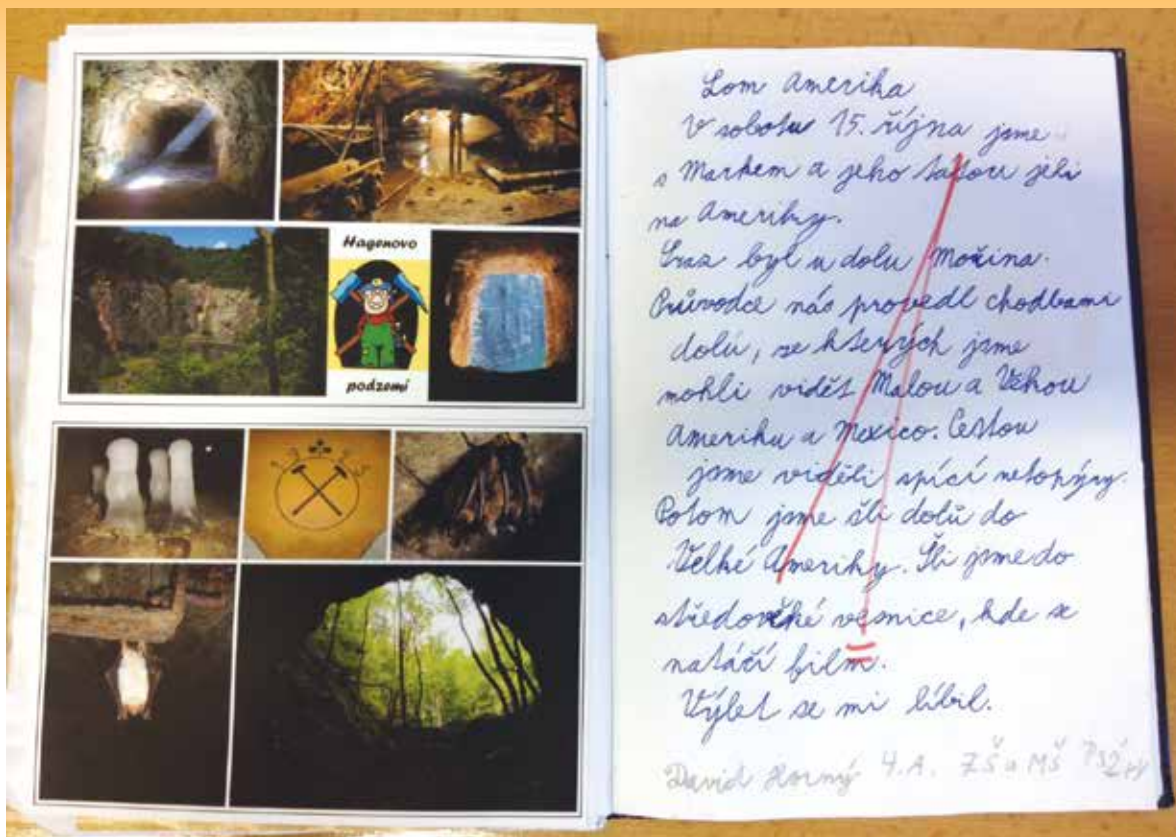 Hagenovo
podzemí
Lom Amerika
V sobotu 15. října jsme
s Markem a jeho tatou jeli
na Ameriky.
Sraz byl u dolu Mořina.
Průvodce nás provedl chodbami
dolu, ze kterých jsme
mohli vidět Malou a Velkou
Ameriku a Mexico. Cestou
jsme viděli spící netopýry.
Potom jsme šli dolů do
Velké Ameriky. Šli jsme do
středověké vesnice, kde se
natáčí film.
Výlet se mi líbil.
David Horný 4.A. ZŠ a MŠ